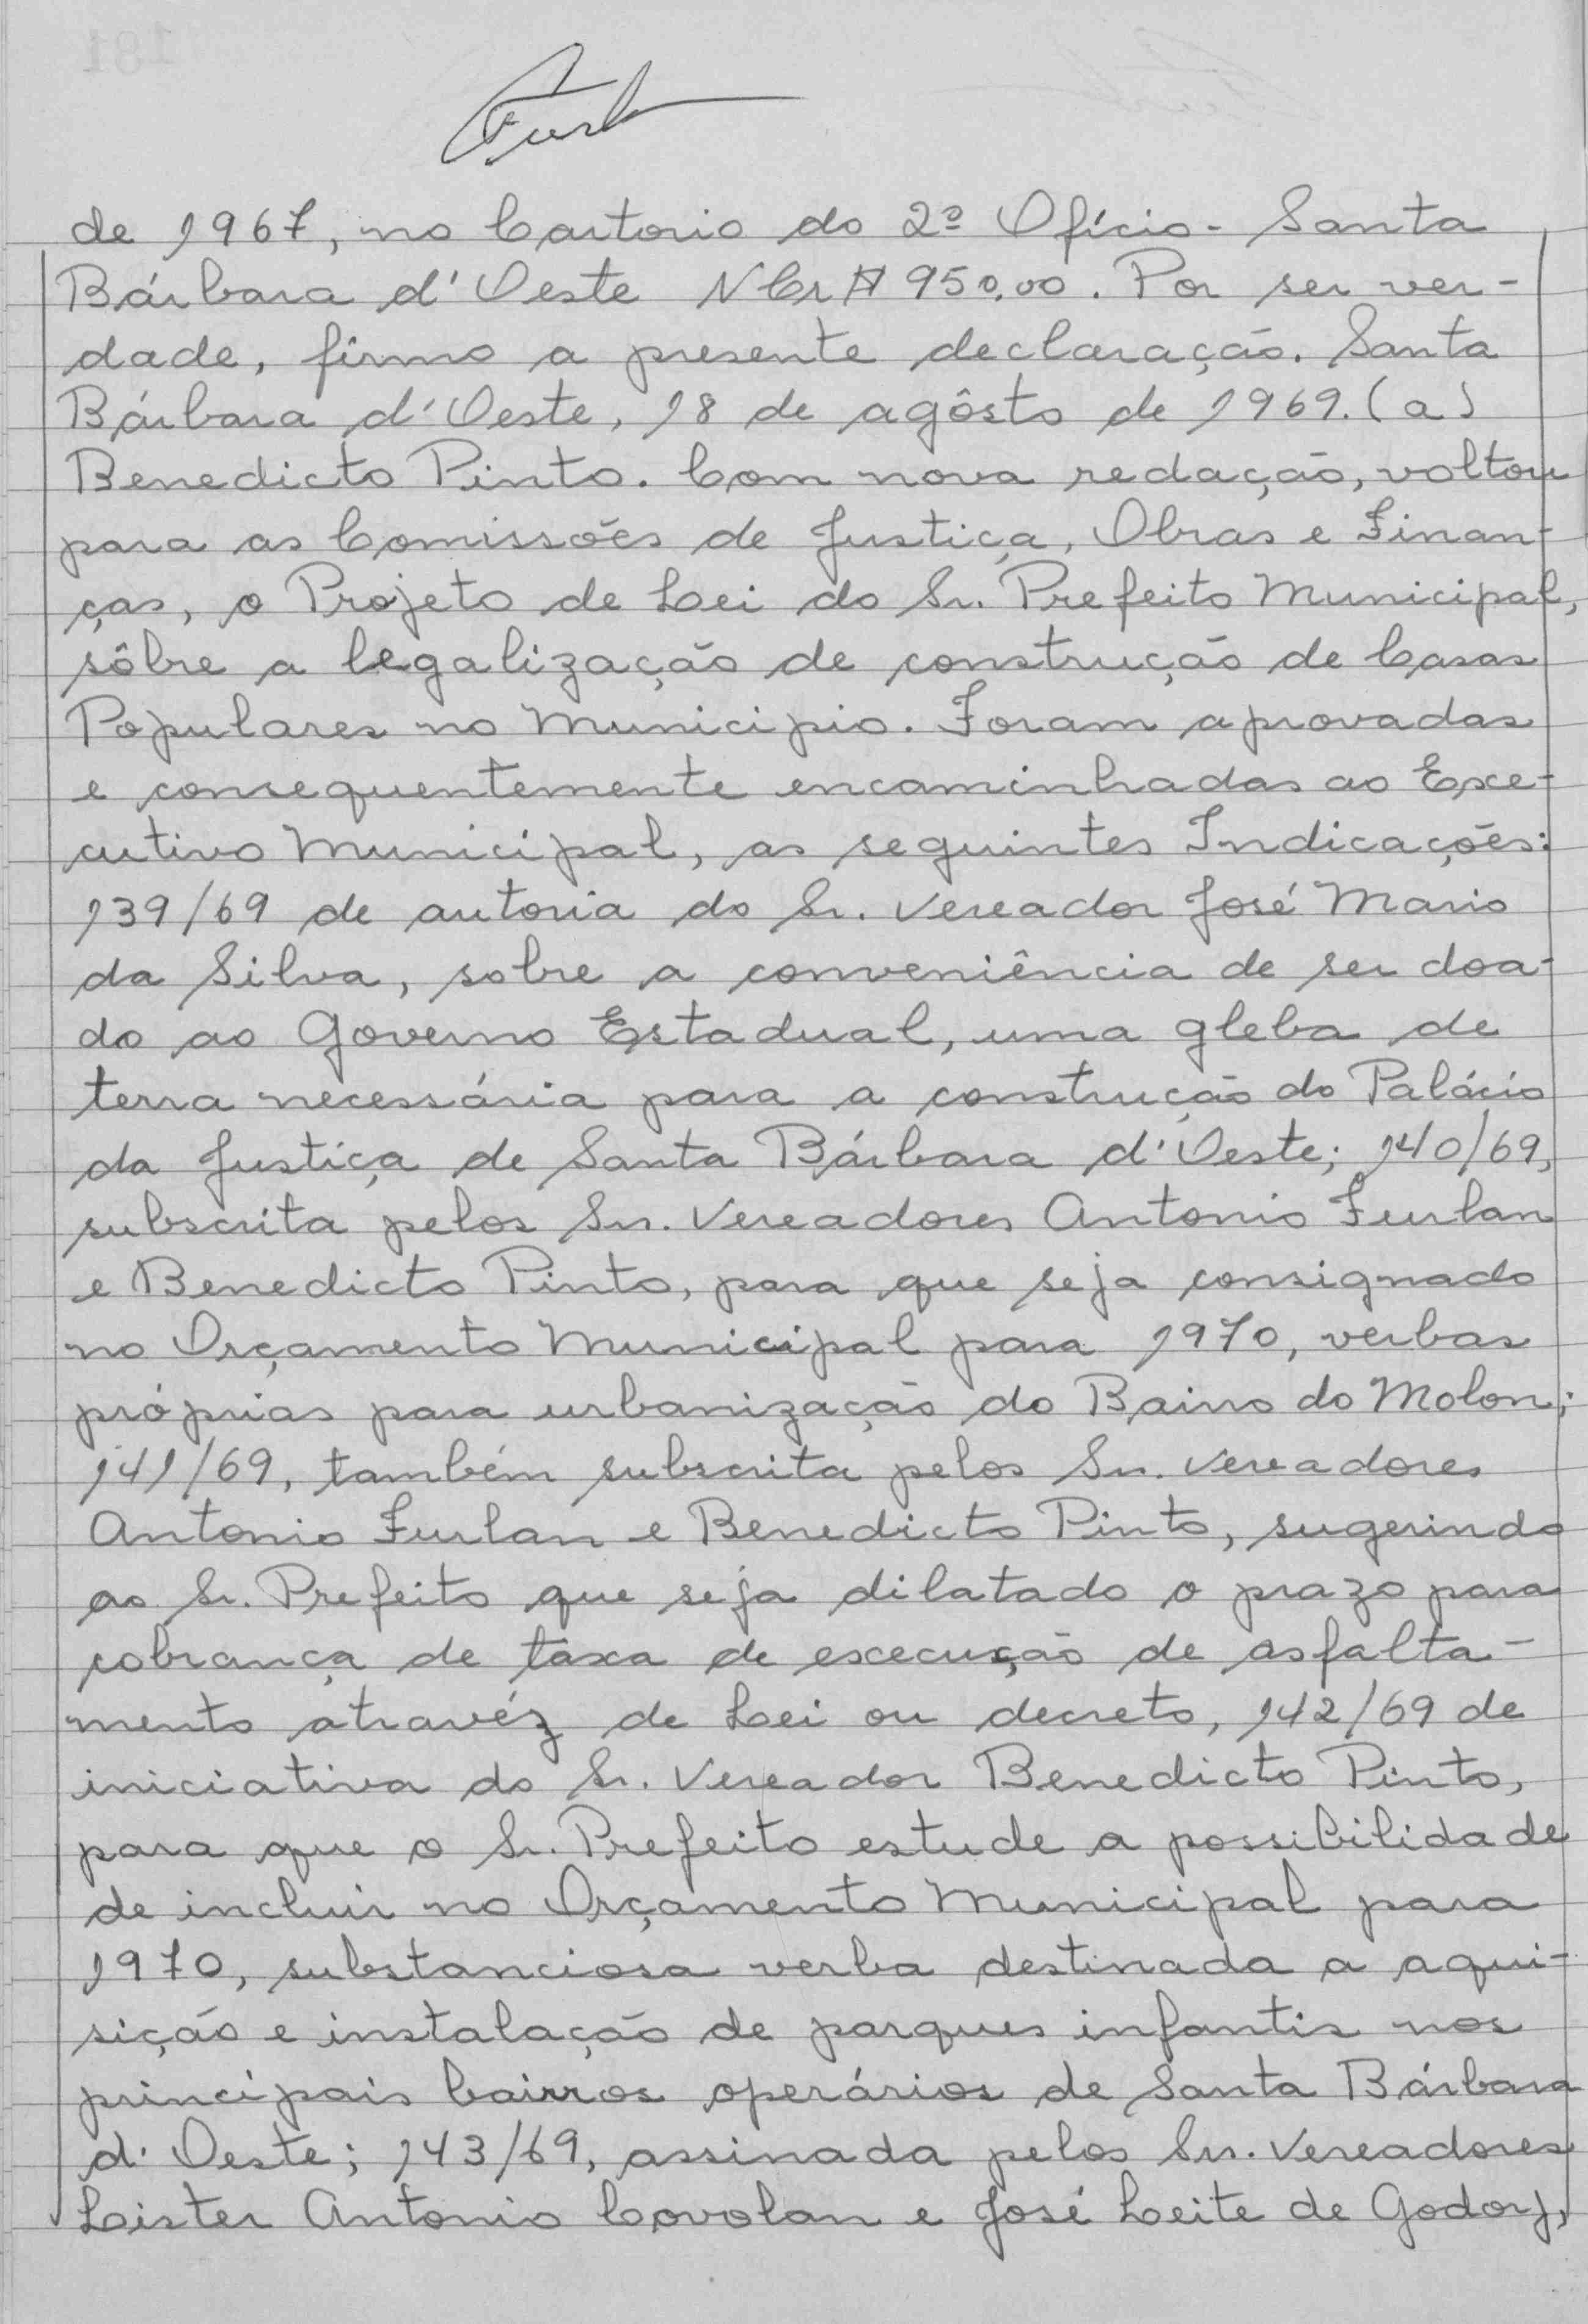 de 1967, no Cartorio do 2º Ofício - Santa
Bárbara d'Oeste NCr$ 950,00. Por ser ver-
dade, firmo a presente declaração. Santa
Bárbara d'Oeste, 18 de agôsto de 1969. (a)
Benedicto Pinto. Com nova redação, voltou
para as Comissões de Justiça, Obras e Finan-
ças, o Projeto de Lei do Sr. Prefeito Municipal,
sôbre a legalização de construção de Casas
Populares no Municipio. Foram aprovadas
e consequentemente encaminhadas ao Exe-
cutivo Municipal, as seguintes Indicações:
139/69 de autoria do Sr. Vereador José Mario
da Silva, sobre a conveniência de ser doa-
do ao Governo Estadual, uma gleba de
terra necessária para a construção do Palácio
da Justiça de Santa Bárbara d'Oeste; 140/69,
subscrita pelos Srs. Vereadores Antonio Furlan
e Benedicto Pinto, para que seja consignado
no Orçamento Municipal para 1970, verbas
próprias para urbanização do Bairro do Molon;
141/69, também subscrita pelos Srs. Vereadores
Antonio Furlan e Benedicto Pinto, sugerindo
ao Sr. Prefeito que seja dilatado o prazo para
cobrança de taxa de execução de asfalta-
mento atravéz de Lei ou decreto, 142/69 de
iniciativa do Sr. Vereador Benedicto Pinto,
para que o Sr. Prefeito estude a possibilidade
de incluir no Orçamento Municipal para
1970, substanciosa verba destinada a aqui-
sição e instalação de parques infantis nos
principais bairros operários de Santa Bárbara
d'Oeste; 143/69, assinada pelos Srs. Vereadores
Lister Antonio Covolan e José Leite de Godoy,